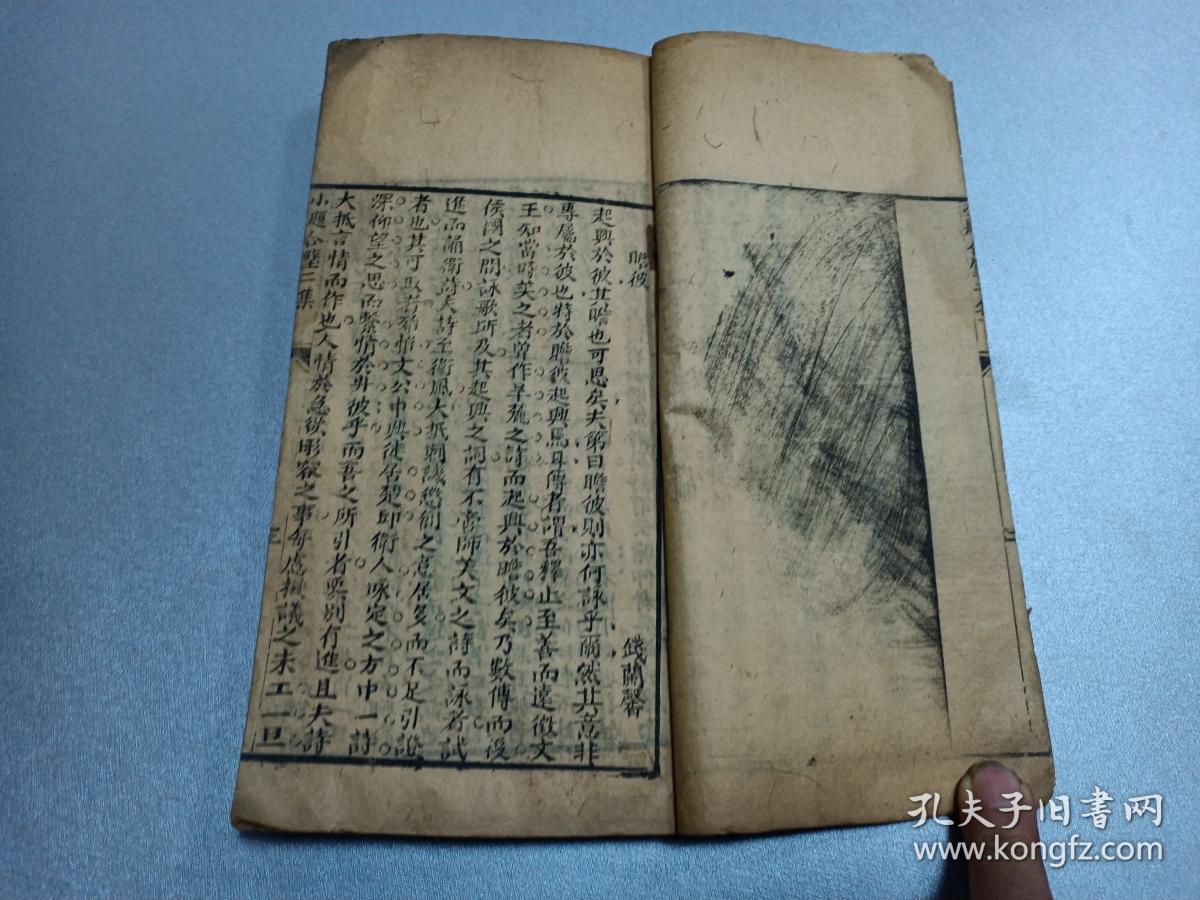 瞻彼
錢蘭馨
起興於彼其瞻也可思矣夫第曰瞻彼則亦何詠乎爾然其意非
專屬於彼也特於瞻彼起興焉耳傳者謂吾釋止至善而遠徵文
王知當時美之者曾作旱麓之詩而起興於瞻彼矣乃數傳而後
侯國之間詠歌所及其起興之詞有不啻師美文之詩而詠者試
進而誦衛詩夫詩至衛風大抵刺譏懲創之意居多而不足引證
者也其可取者殆惟文公中興徙居楚邱衛人咏定之方中一詩
深仰望之思而繫情於升彼乎而吾之所引者要别有進且夫詩
大抵言情而作也人情於急欲形容之事每慮擬議之未工一旦
小題 三集
三
孔夫子旧书网
www.kongfz.com